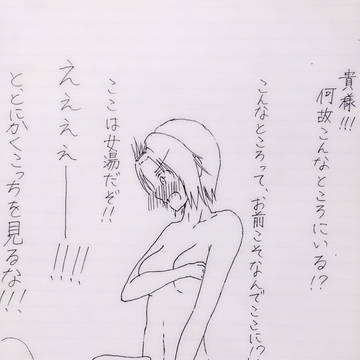 貴様!!!
何故こんなところにいる!?
こんなところって、お前こそなんでここに!?
ここは女湯だぞ!!
ええええー!!!!
と、とにかくこっちを見るな!!!